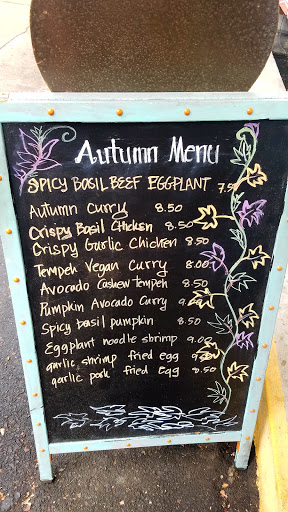 Autumn Menu
SPICY BOSIL BEEF EGGPLANT 7.50
Autumn Curry 8.50
Crispy Basil Chicken 8.50
Crispy Garlic Chicken 8.50
Tempeh Vegan Curry 8.00
Avocado Cashew Tempeh 8.50
Pumpkin Avocado Curry
Spicy basil pumpkin 8.50
Eggplant noodle shrimp 9.00
garlic shrimp fried egg
garlic pork fried Egg 8.50